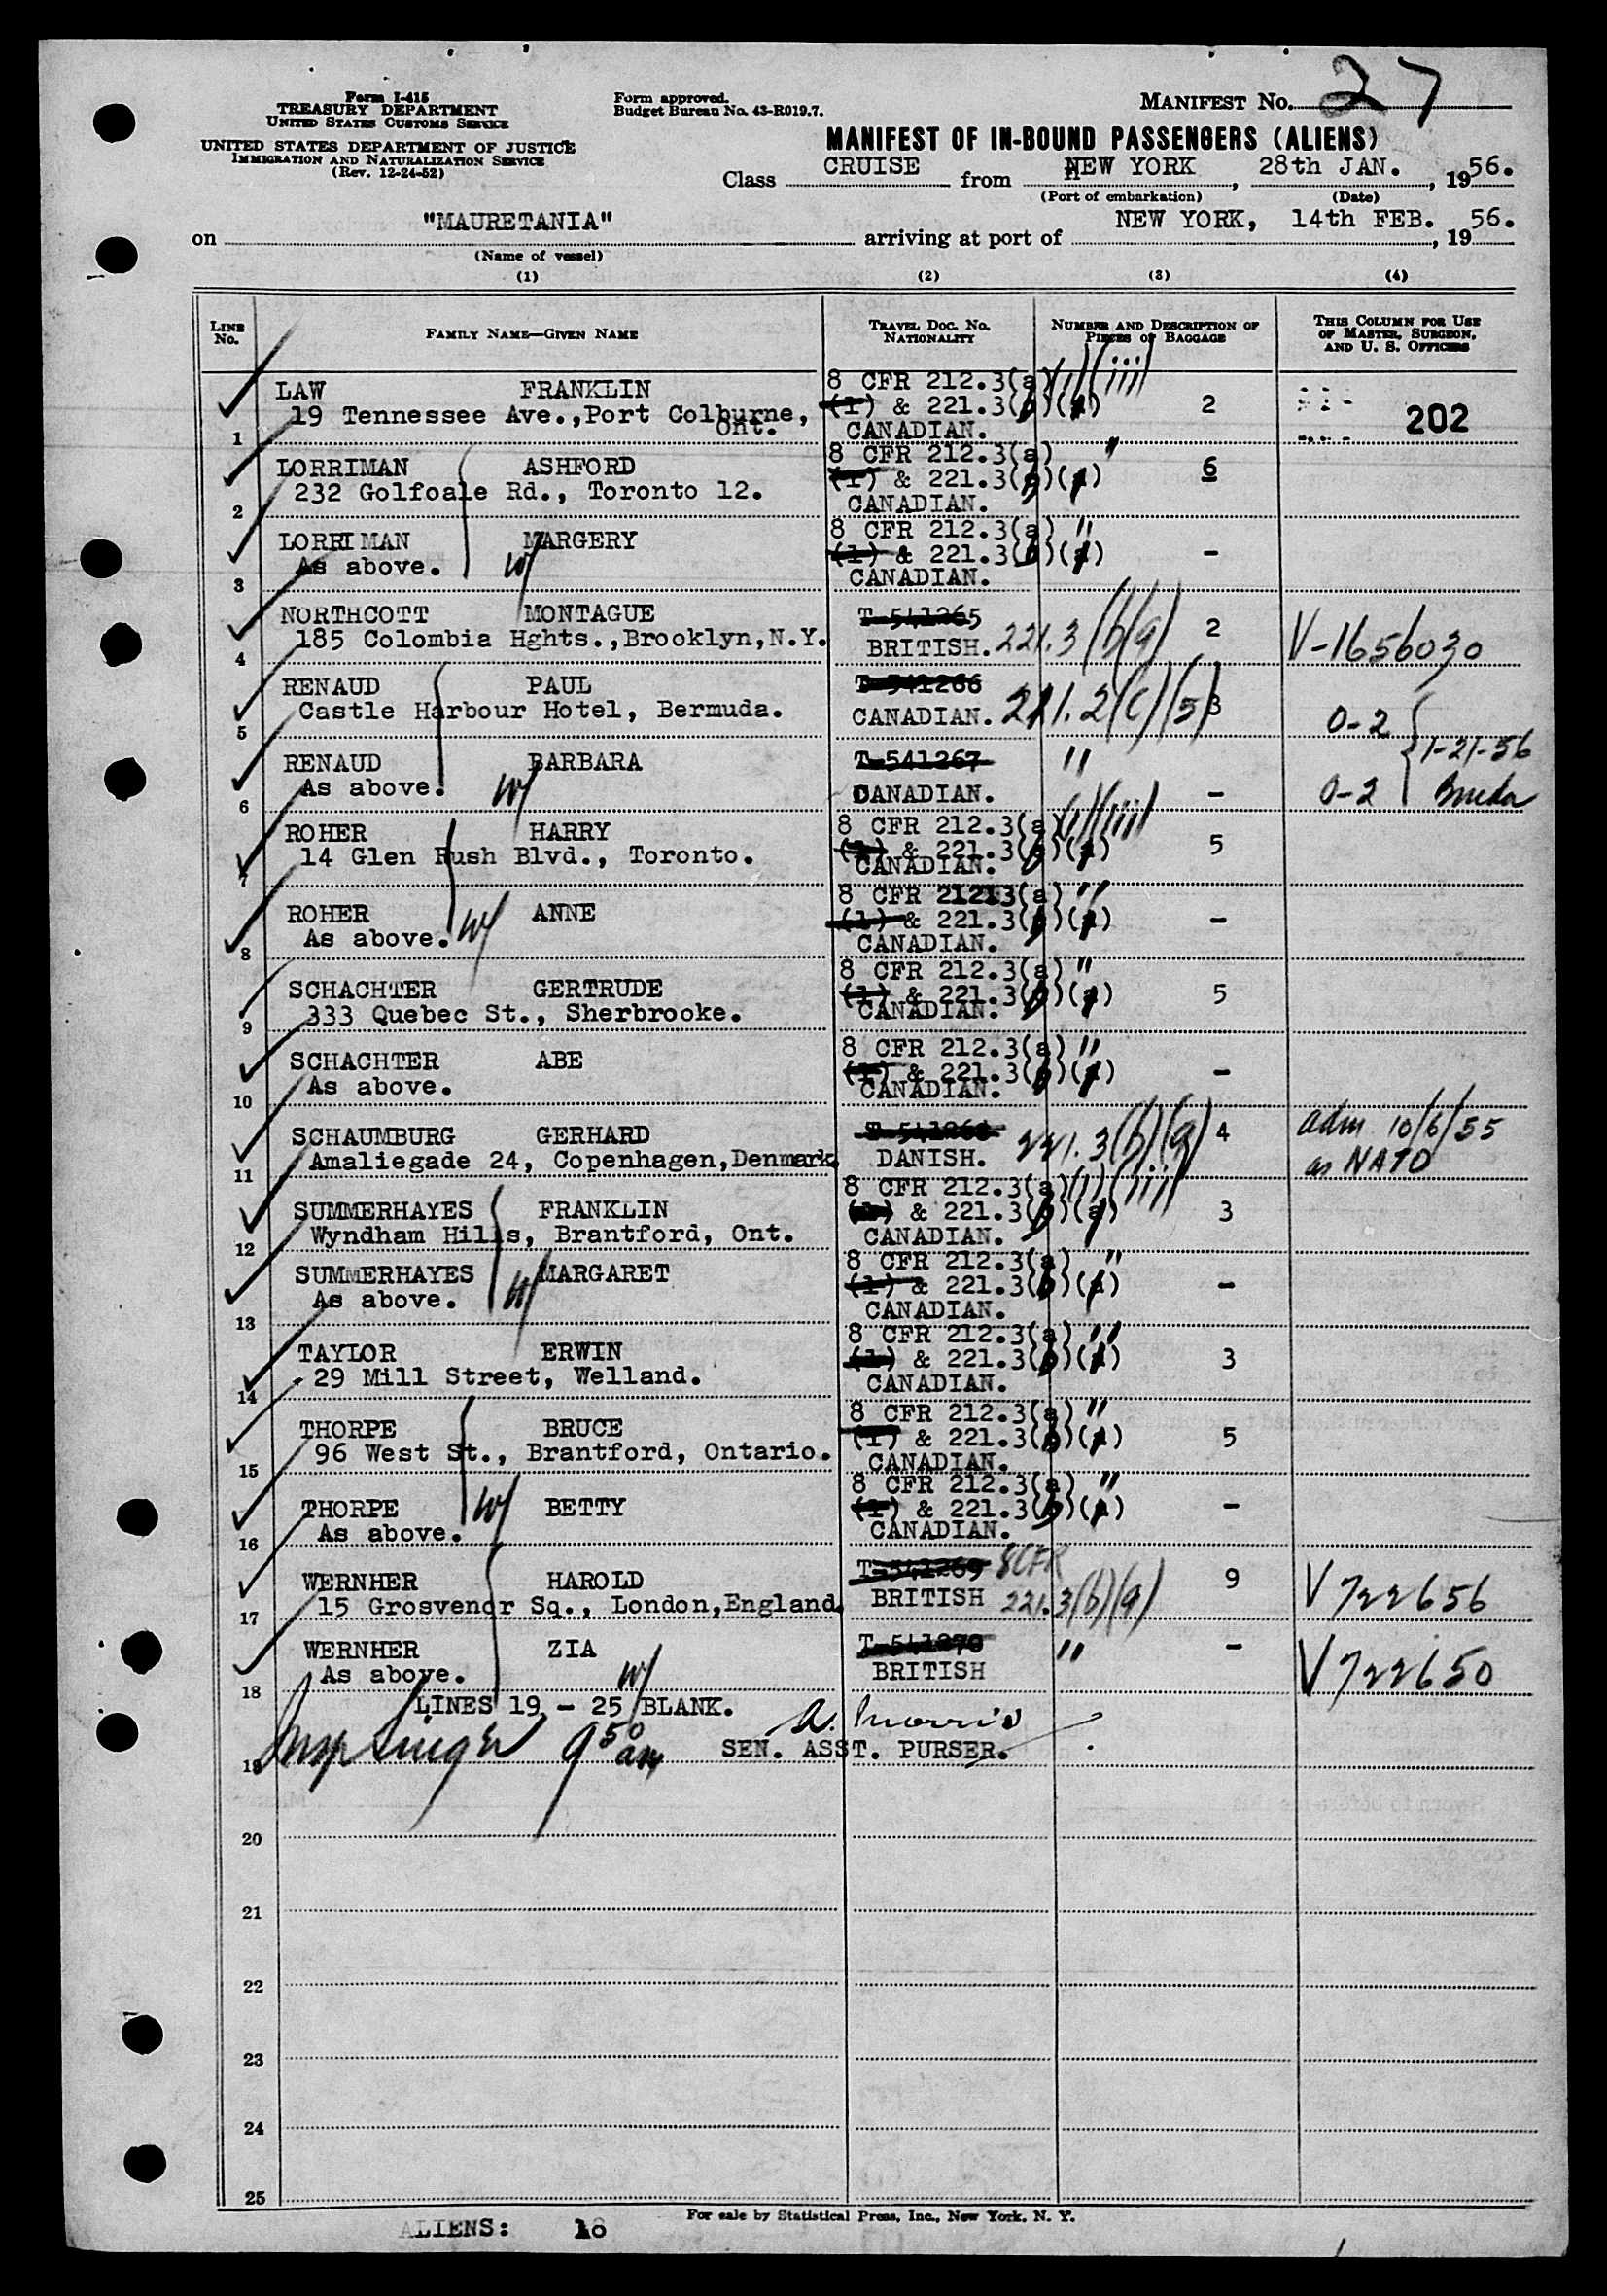 Form I-415
TREASURY DEPARTMENT
UNITED STATES CUSTOMS SERVICE
UNITED STATES DEPARTMENT OF JUSTICE
IMMIGRATION AND NATURALIZATION SERVICE
(Rev. 12-24-52)
Form approved.
Budget Bureau No. 43-R019.7.
MANIFEST No. 27
MANIFEST OF IN-BOUND PASSENGERS (ALIENS)
Class CRUISE from NEW YORK, 28th JAN., 1956.
(Port of embarkation) (Date)
on "MAURETANIA" arriving at port of NEW YORK, 14th FEB., 1956.
(Name of vessel)
(1) (2) (3) (4)
LINE No. FAMILY NAME—GIVEN NAME TRAVEL DOC. No. NATIONALITY NUMBER AND DESCRIPTION OF PIECES OF BAGGAGE THIS COLUMN FOR USE OF MASTER, SURGEON, AND U. S. OFFICERS
LAW FRANKLIN 8 CFR 212.3(a)(i)(iii)
19 Tennessee Ave.,Port Colburne, Ont. (1) & 221.3(b)(a) 2 202
1 CANADIAN.
LORRIMAN ASHFORD 8 CFR 212.3(a) "
232 Golfoale Rd., Toronto 12. (1) & 221.3(b)(a) 6
2 CANADIAN.
LORRIMAN MARGERY 8 CFR 212.3(a) "
As above. W/ (1) & 221.3(b)(a) -
3 CANADIAN.
NORTHCOTT MONTAGUE T-541265
185 Colombia Hghts.,Brooklyn,N.Y. BRITISH. 221.3(b)(a) 2 V-1656030
4
RENAUD PAUL T-541266
Castle Harbour Hotel, Bermuda. CANADIAN. 211.2(c)(5) 3 0-2
5 1-21-56
RENAUD BARBARA T-541267 "
As above. W/ CANADIAN. - 0-2
6
ROHER HARRY 8 CFR 212.3(a)(i)(iii)
14 Glen Rush Blvd., Toronto. (1) & 221.3(b)(a) 5
7 CANADIAN.
ROHER ANNE 8 CFR 21213(a) "
As above. W/ (1) & 221.3(b)(a) -
8 CANADIAN.
SCHACHTER GERTRUDE 8 CFR 212.3(a) "
333 Quebec St., Sherbrooke. (1) & 221.3(b)(a) 5
9 CANADIAN.
SCHACHTER ABE 8 CFR 212.3(a) "
As above. (1) & 221.3(b)(a) -
10 CANADIAN.
SCHAUMBURG GERHARD T-541268 221.3(b)(a) 4 adm 10/6/55
Amaliegade 24, Copenhagen,Denmark. DANISH. as NATO
11
SUMMERHAYES FRANKLIN 8 CFR 212.3(a)(i)(iii)
Wyndham Hills, Brantford, Ont. (1) & 221.3(b)(a) 3
12 CANADIAN.
SUMMERHAYES MARGARET 8 CFR 212.3(a) "
As above. W/ (1) & 221.3(b)(a) -
13 CANADIAN.
TAYLOR ERWIN 8 CFR 212.3(a) "
29 Mill Street, Welland. (1) & 221.3(b)(a) 3
14 CANADIAN.
THORPE BRUCE 8 CFR 212.3(a) "
96 West St., Brantford, Ontario. (1) & 221.3(b)(a) 5
15 CANADIAN.
THORPE BETTY 8 CFR 212.3(a) "
As above. W/ (1) & 221.3(b)(a) -
16 CANADIAN.
WERNHER HAROLD T-541269 8CFR 9 V722656
15 Grosvenor Sq., London,England. BRITISH 221.3(b)(a)
17
WERNHER ZIA T-541270 " - V722650
As above. W/ BRITISH
18
LINES 19 - 25 BLANK. A. Morris
Insp Singer 9 50 am SEN. ASST. PURSER.
19
20
21
22
23
24
25
For sale by Statistical Press, Inc., New York, N. Y.
ALIENS: 18